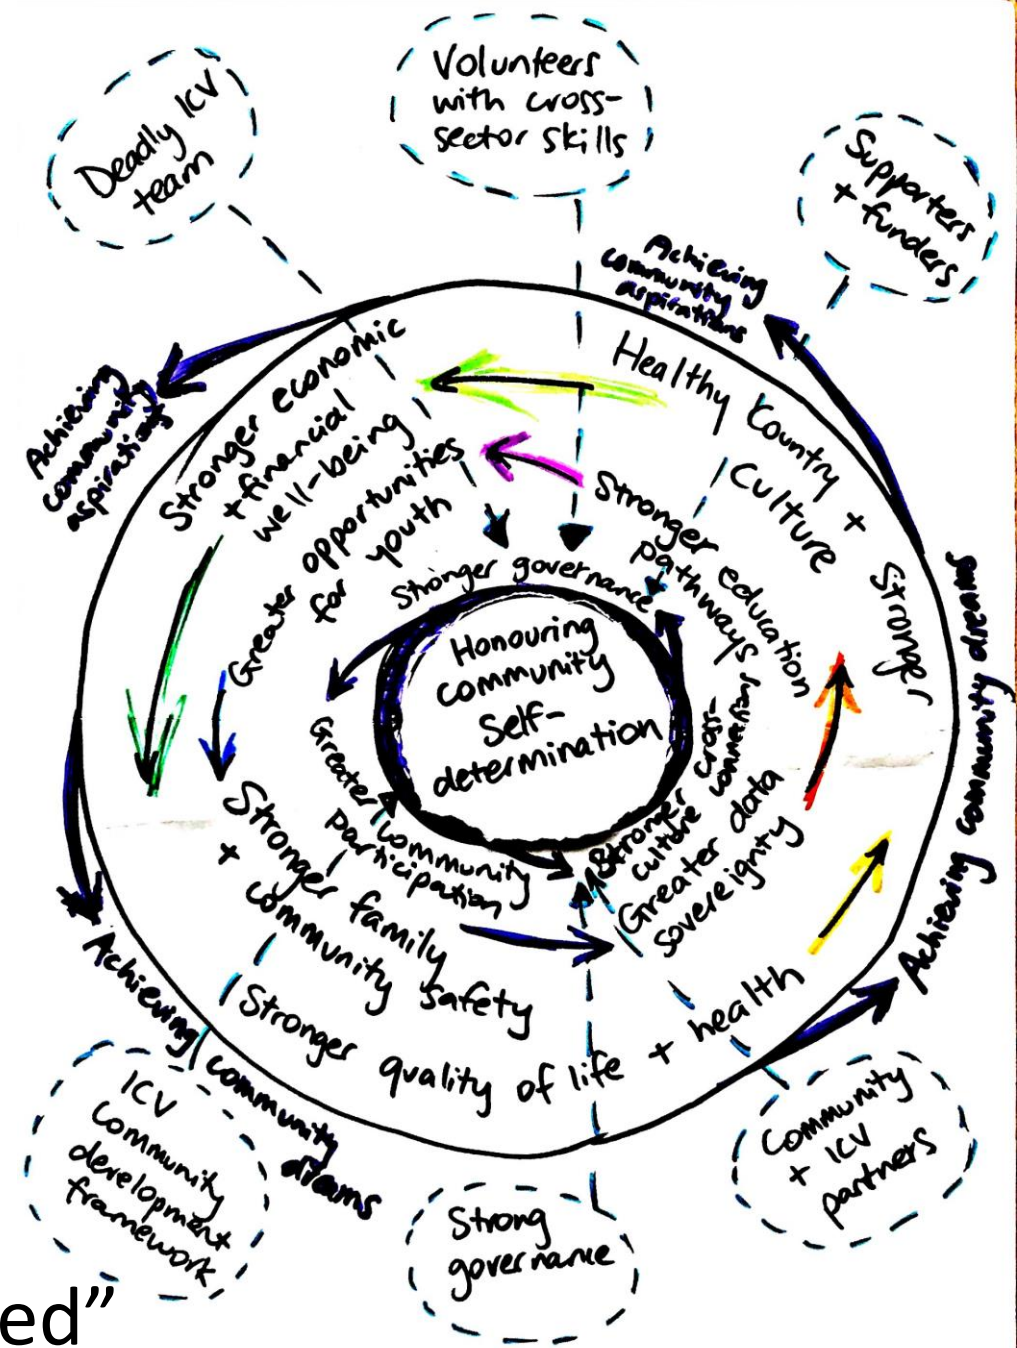 Deadly ICV
team
Volunteers
with cross-
sector skills
Supporters
+ funders
Achieving
community
aspirations
Achieving
community
aspirations
Stronger economic
+ financial
well-being
Healthy Country + Stronger
Culture
Greater opportunities
for youth
Stronger education
pathways
Stronger governance
Honouring
community
Self-
determination
Greater community
participation
Stronger cross-
culture connections
Greater data
sovereignty
Stronger family
+ community safety
Stronger quality of life + health
Achieving community dreams
Achieving community
dreams
ICV
Community
development
framework
Strong
governance
Community
+ ICV
partners
ed”